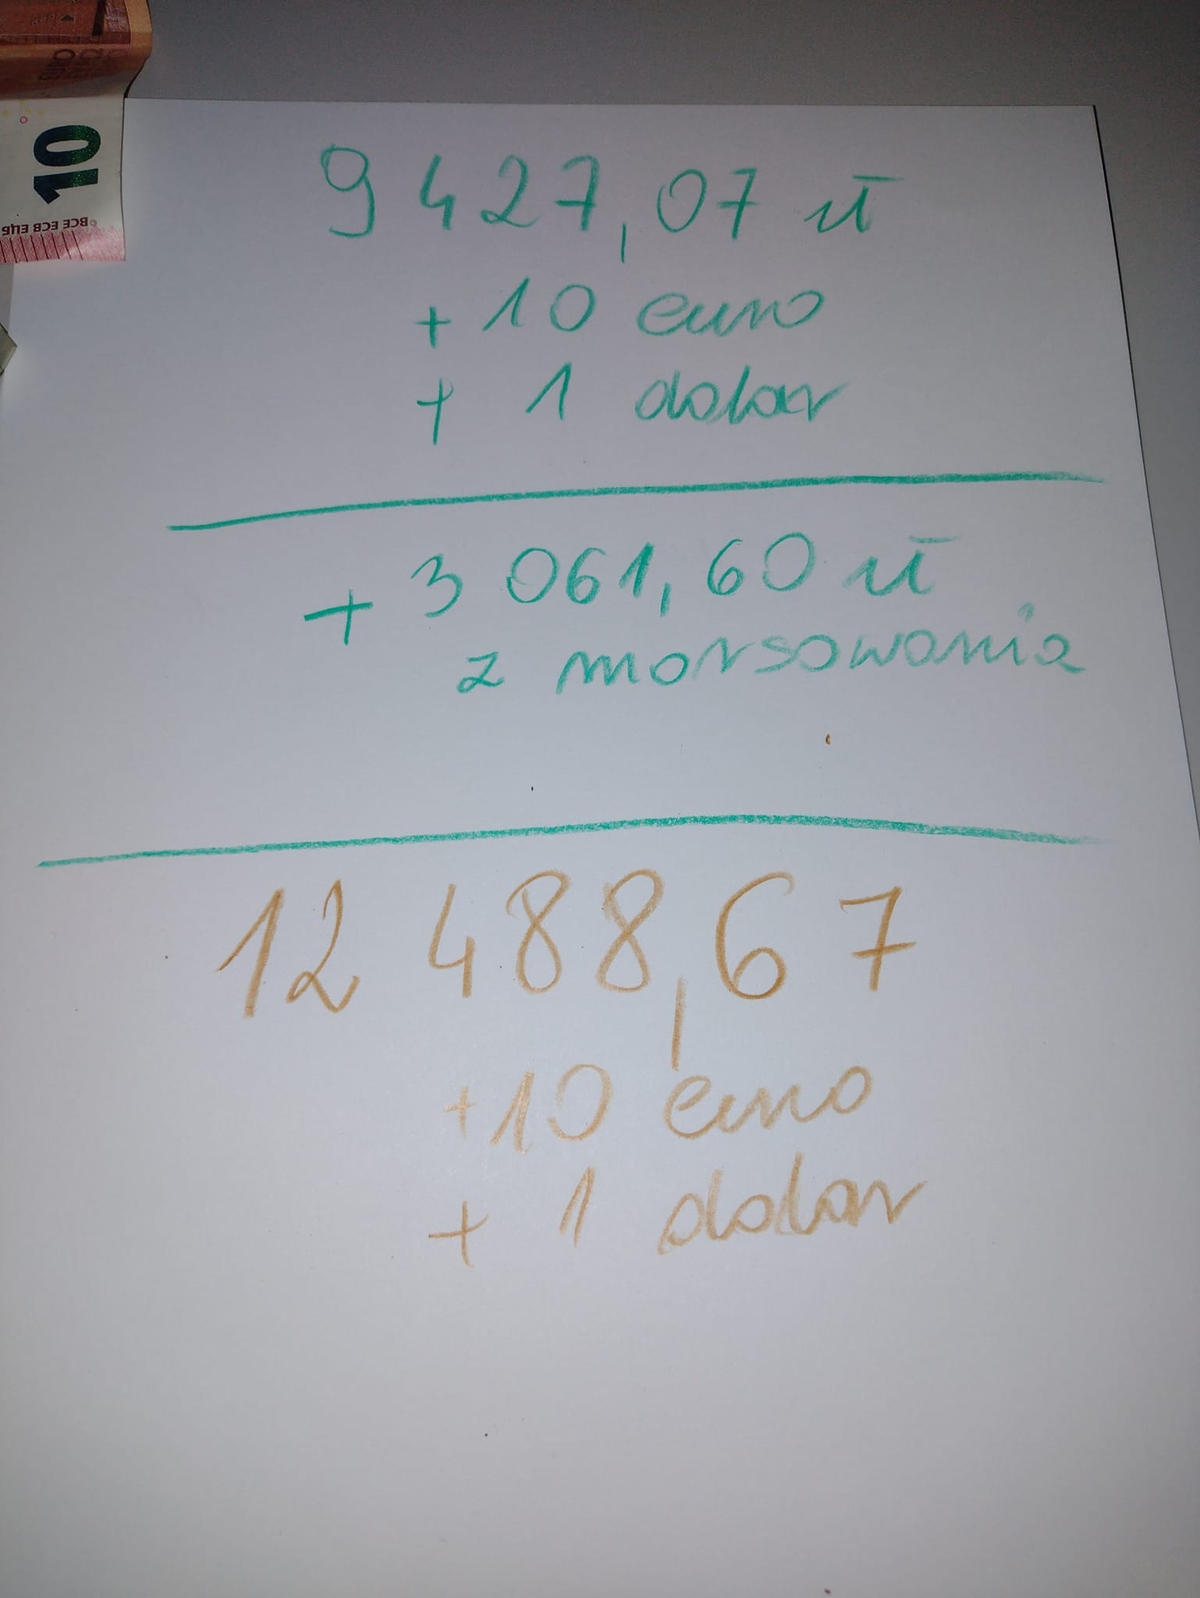 10
BCE ECB ЕЦБ
9 427,07 zł
+ 10 euro
+ 1 dolar
+ 3 061,60 zł
z morsowania
12 488,67
+10 euro
+ 1 dolar